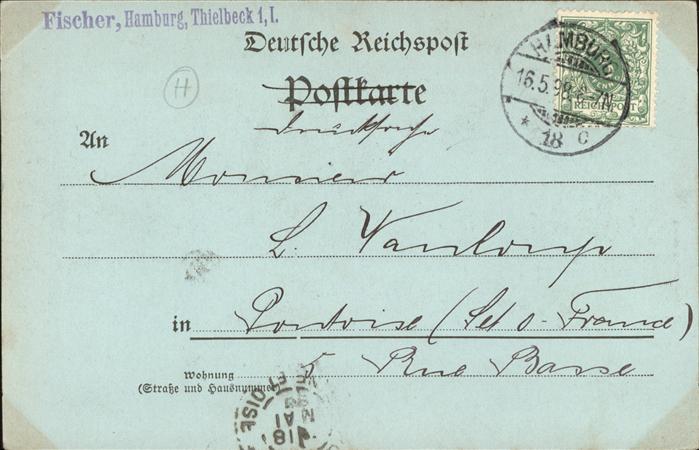 Fischer, Hamburg, Thielbeck 1, I.
Deutsche Reichspost
Postkarte
Drucksache
An Monsieur
L. Vanloup
in Pontoise (Set O- France)
Wohnung 5 Rue Basse
(Straße und Hausnummer)
HAMBURG
16.5.98
* 18 c
REICHSPOST
H
ET OISE
18